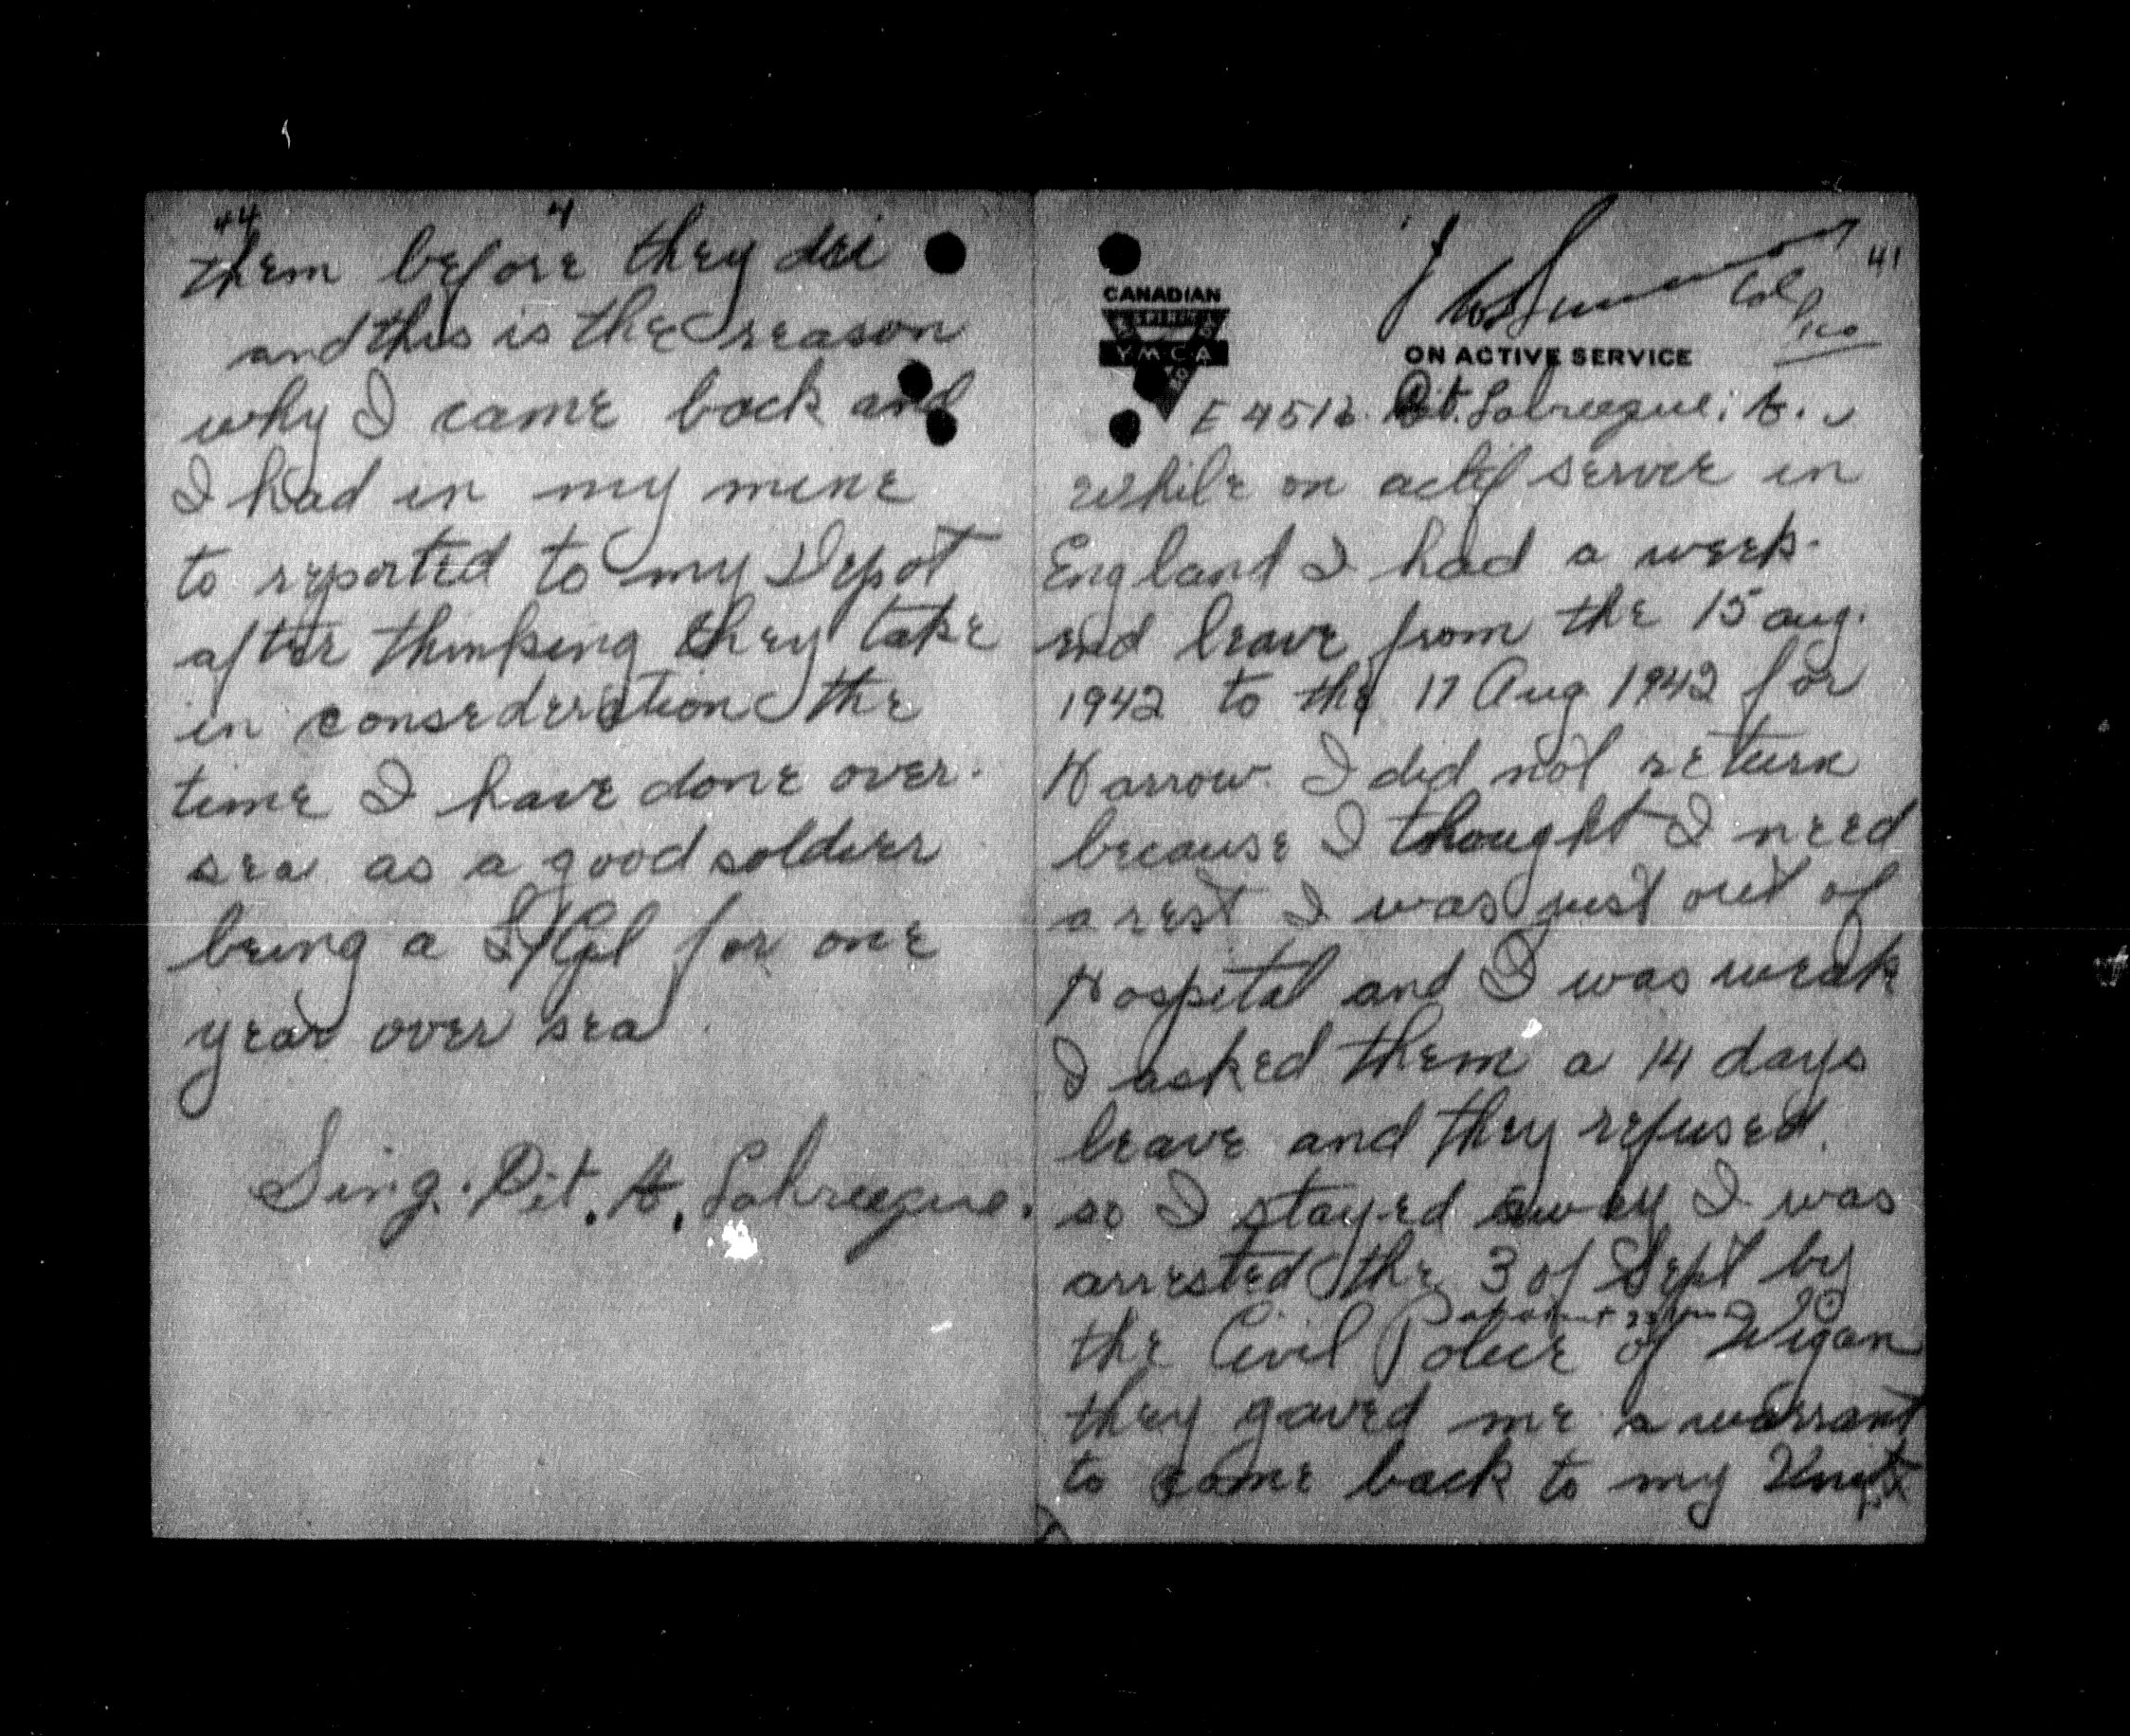 44 4
them before they dei
and this is the reason
why I came back and
I had in my mine
to reported to my Depot
after thinking they take
in consederation the
time I have done over.
sea as a good soldier
being a L/Cpl for one
year over sea.
Sing. Pit. A. Labrecque.
41
Col
CANADIAN
YMCA
ON ACTIVE SERVICE
E 4512 Pit. Labrecque, A.
while on actif servce in
England I had a week.
end leave from the 15 aug.
1942 to the 17 Aug 1942 for
Harrow. I did not return
because I thought I need
a rest I was just out of
Hospital and I was weak
I asked them a 14 days
leave and they refused.
so I stayed away I was
arrested the 3 of Sept by
at about
the Civil Police of Wigan
they gaved me a warrant
to came back to my Unit